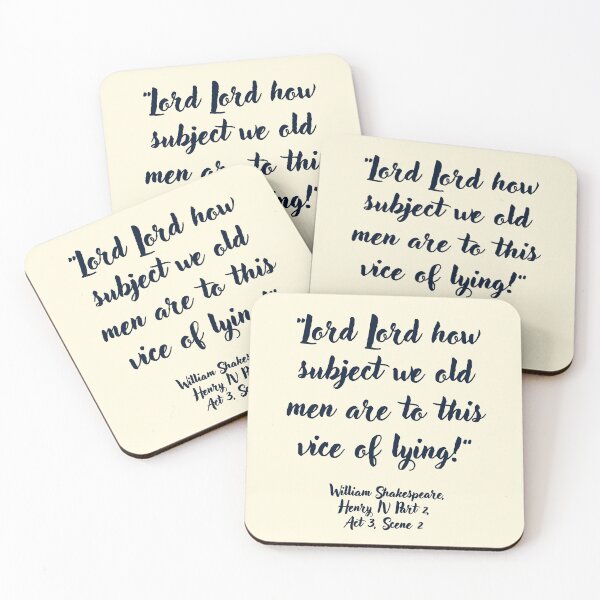 “Lord Lord how
subject we old
men are to this
“Lord Lord how
subject we old
men are to this
vice of lying!“
“Lord Lord how
subject we old
men are to this
vice of
William
Henry, IV
Act 3,
“Lord Lord how
subject we old
men are to this
vice of lying!“
William Shakespeare,
Henry, IV Part 2,
Act 3, Scene 2